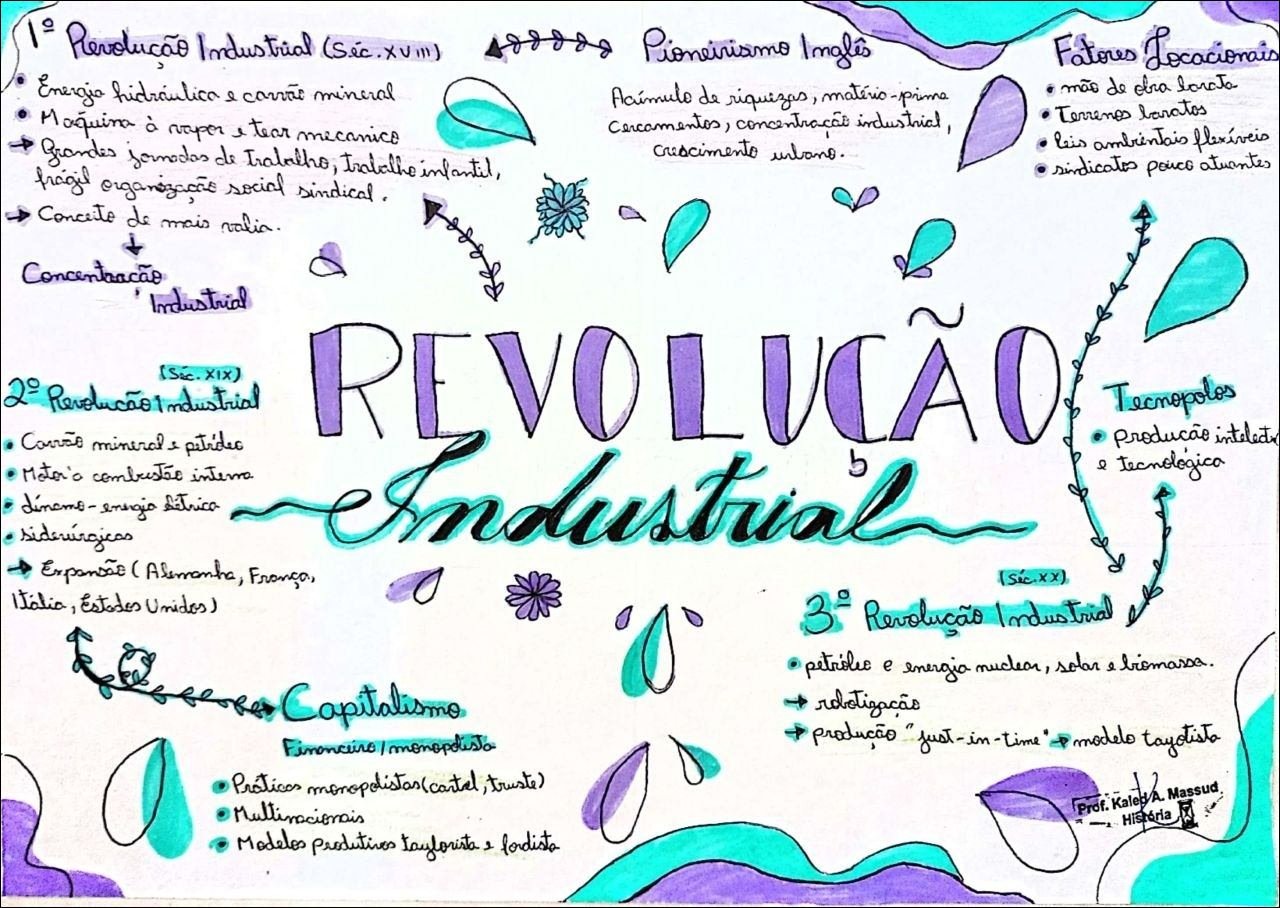 1º Revolução Industrial (Séc. XVIII)
• Energia hidráulica e carvão mineral
• Maquina à vapor e tear mecanico
→ Grandes jornadas de trabalho, trabalho infantil,
frágil organização social sindical.
→ Conceito de mais valia.
Concentração
Industrial
Pioneirismo Inglês
Acúmulo de riquezas, matéria-prima
cercamentos, concentração industrial,
crescimento urbano.
Fatores Locacionais
• mão de obra barata
• Terrenos baratos
• leis ambientais flexíveis
• sindicatos pouco atuantes
REVOLUÇÃO
Industrial
(Séc. XIX)
2º Revolução Industrial
• Carvão mineral e petróleo
• Motor a combustão interna
• dínamo-energia elétrica
• siderúrgicas
→ Expansão (Alemanha, França,
Itália, Estados Unidos)
Tecnopolos
• produção intelect
e tecnológica
Capitalismo
Financeiro/monopolista
• Práticas monopolistas (cartel, truste)
• Multinacionais
• Modelos produtivos taylorista e fordista
(Séc. XX)
3º Revolução Industrial
• petróleo e energia nuclear, solar e biomassa.
→ robotização
→ produção "just-in-time" → modelo tayotista
Prof. Kaled A. Massud
História